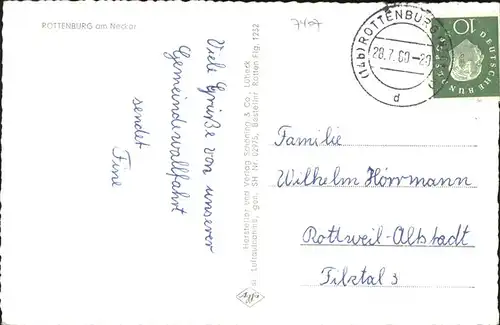 ROTTENBURG am Neckar
7407
Viele Grüße von unserer
Gemeindewallfahrt
sendet
Fine
Hersteller und Verlag Schöning & Co., Lübeck
Luftaufnahme, gen. SH Nr 02975, Bestellnr Rotten Flg. 1232
(14b) ROTTENBURG
28.7.60-20
d
10
DEUTSCHE BUNDESPOST
Familie
Wilhelm Hörrmann
Rottweil-Altstadt
Filztal 3